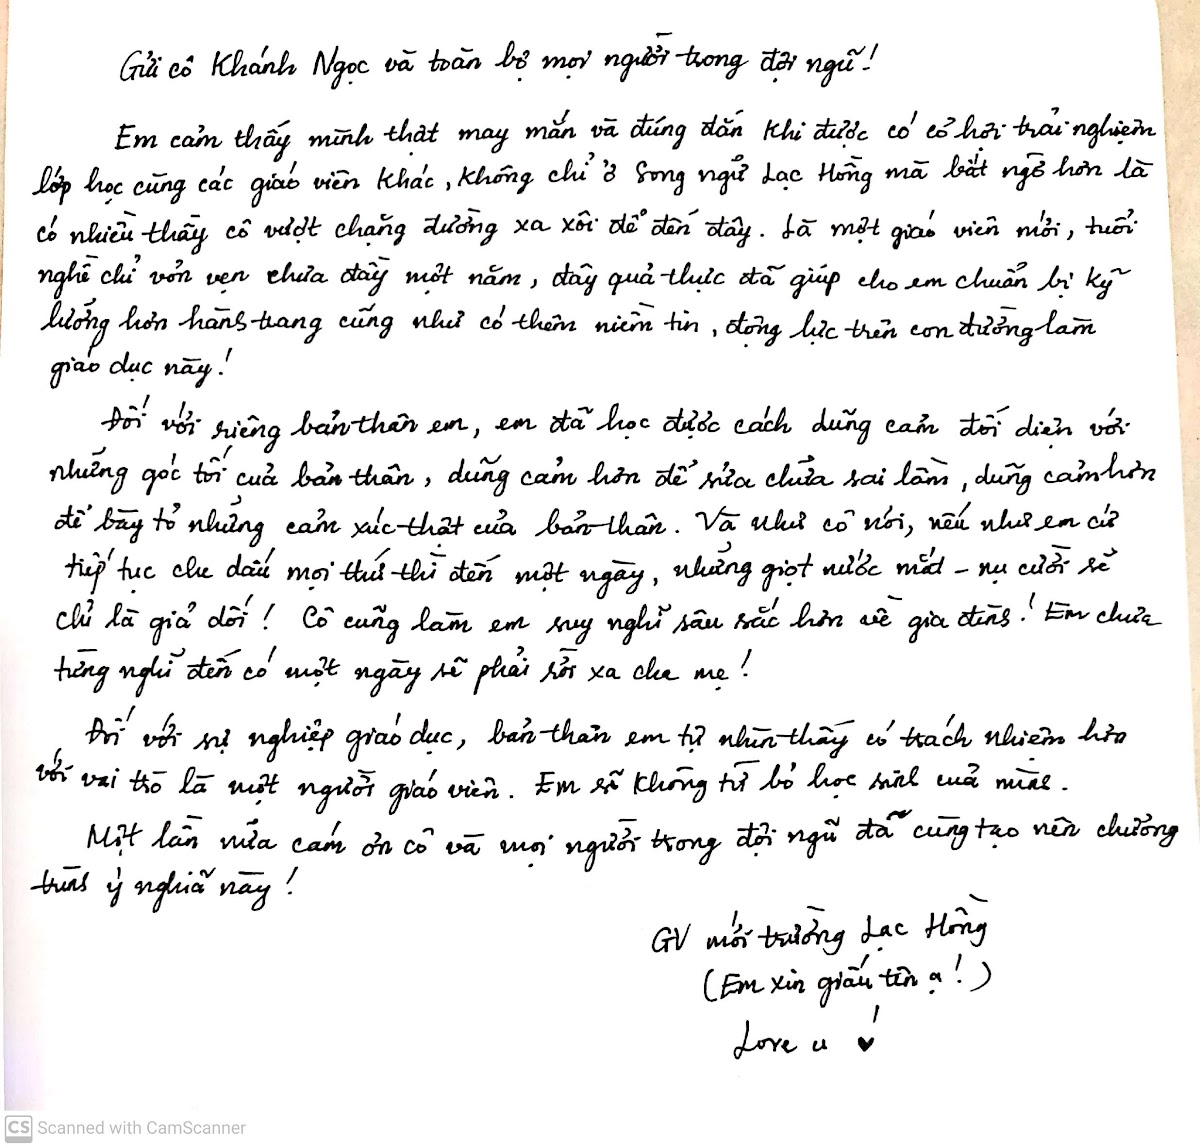 Gửi cô Khánh Ngọc và toàn bộ mọi người trong đội ngũ!
Em cảm thấy mình thật may mắn và đúng đắn khi được có cơ hội trải nghiệm
lớp học cùng các giáo viên khác, không chỉ ở Song ngữ Lạc Hồng mà bất ngờ hơn là
có nhiều thầy cô vượt chặng đường xa xôi để đến đây. Là một giáo viên mới, tuổi
nghề chỉ vỏn vẹn chưa đầy một năm, đây quả thực đã giúp cho em chuẩn bị kỹ
lưỡng hơn hành trang cũng như có thêm niềm tin, động lực trên con đường làm
giáo dục này!
Đối với riêng bản thân em, em đã học được cách dũng cảm đối diện với
những góc tối của bản thân, dũng cảm hơn để sửa chữa sai lầm, dũng cảm hơn
để bày tỏ những cảm xúc thật của bản thân. Và như cô nói, nếu như em cứ
tiếp tục che dấu mọi thứ thì đến một ngày, những giọt nước mắt - nụ cười sẽ
chỉ là giả dối! Cô cũng làm em suy nghĩ sâu sắc hơn về gia đình! Em chưa
từng nghĩ đến có một ngày sẽ phải rời xa cha mẹ!
Đối với sự nghiệp giáo dục, bản thân em tự nhìn thấy có trách nhiệm hơn
với vai trò là một người giáo viên. Em sẽ không từ bỏ học sinh của mình.
Một lần nữa cám ơn cô và mọi người trong đội ngũ đã cùng tạo nên chương
trình ý nghĩa này!
GV mới trường Lạc Hồng
(Em xin giấu tên ạ!)
Love u ♥
CS Scanned with CamScanner